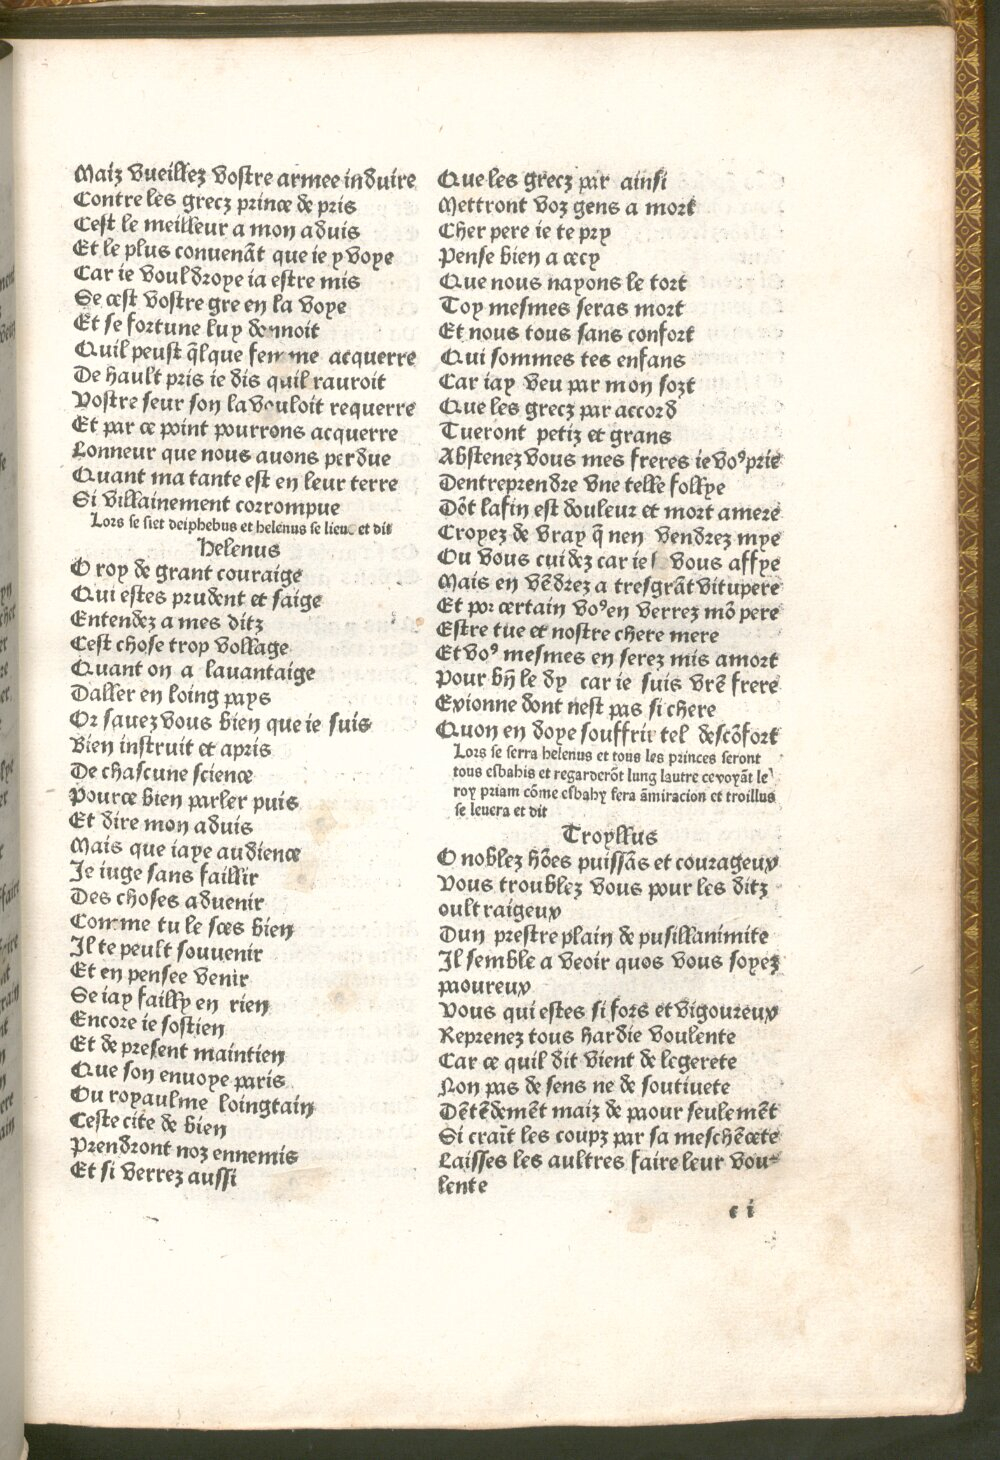 Maiz vueillez vostre armee induire
Contre les grecz prince de pris
Cest le meilleur a mon aduis
Et le plus conuenāt que ie y voye
Car ie vouldroye ia estre mis
Se cest vostre gre en la voye
Et se fortune luy donnoit
Quil peust q̄lque femme acquerre
De hault pris ie dis quil rauroit
Vostre seur son la vouloit requerre
Et par ce point pourrons acquerre
Lonneur que nous auons perdue
Quant ma tante est en leur terre
Si villainement corrompue
Lors se siet deiphebus et helenus se lieue et dit
Helenus
O roy de grant couraige
Qui estes prudent et saige
Entendez a mes ditz
Cest chose trop vollage
Quant on a lauantaige
Daller en loing pays
Or sauez vous bien que ie suis
Bien instruit et apris
De chascune science
Pource bien parler puis
Et dire mon aduis
Mais que iaye audience
Je iuge sans faillir
Des choses aduenir
Comme tu le sces bien
Il te peult souuenir
Et en pensee venir
Se iay failly en rien
Encore ie sostien
Et de present maintien
Que son enuoye paris
Ou royaulme loingtain
Ceste cite de bien
Prendront noz ennemis
Et si verrez aussi
Que les grecz par ainsi
Mettront voz gens a mort
Cher pere ie te pry
Pense bien a cecy
Que nous nayons le tort
Toy mesmes seras mort
Et nous tous sans confort
Qui sommes tes enfans
Car iay veu par mon sort
Que les grecz par accord
Tueront petiz et grans
Abstenez vous mes freres ie voꝰ prie
Dentreprendre vne telle follye
Dōt la fin est douleur et mort amere
Croyez de vray q̄ nen vendrez mye
Ou vous cuidez car ie vous affye
Mais en vēdrez a tresgrāt vitupere
Et por certain voꝰ en verrez mō pere
Estre tue et nostre chere mere
Et voꝰ mesmes en serez mis a mort
Pour bn̄ le dy car ie suis vrē frere
Exionne dont nest pas si chere
Quon en doye souffrir tel descōfort
Lors se serra helenus et tous les princes seront
tous esbahis et regarderōt lung lautre ce voyāt le
roy priam cōme esbahy sera āmiracion et troillus
se leuera et dit
Troyllus
O noblez hōes puissās et courageux
Vous troublez vous pour les ditz
oultraigeux
Dun prestre plain de pusillanimite
Il semble a veoir quos vous soyez
paoureux
Vous qui estes si fors et vigoureux
Reprenez tous hardie voulente
Car ce quil dit vient de legerete
Non pas de sens ne de soutiuete
Dētēdemēt maiz de paour seulemēt
Si craīt les coupz par sa meschēcete
Laisses les aultres faire leur vou-
lente
c i